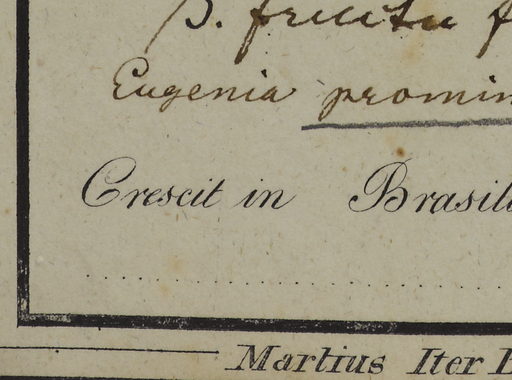 β. fructu
Eugenia promin
Crescit in Brasil
Martius Iter